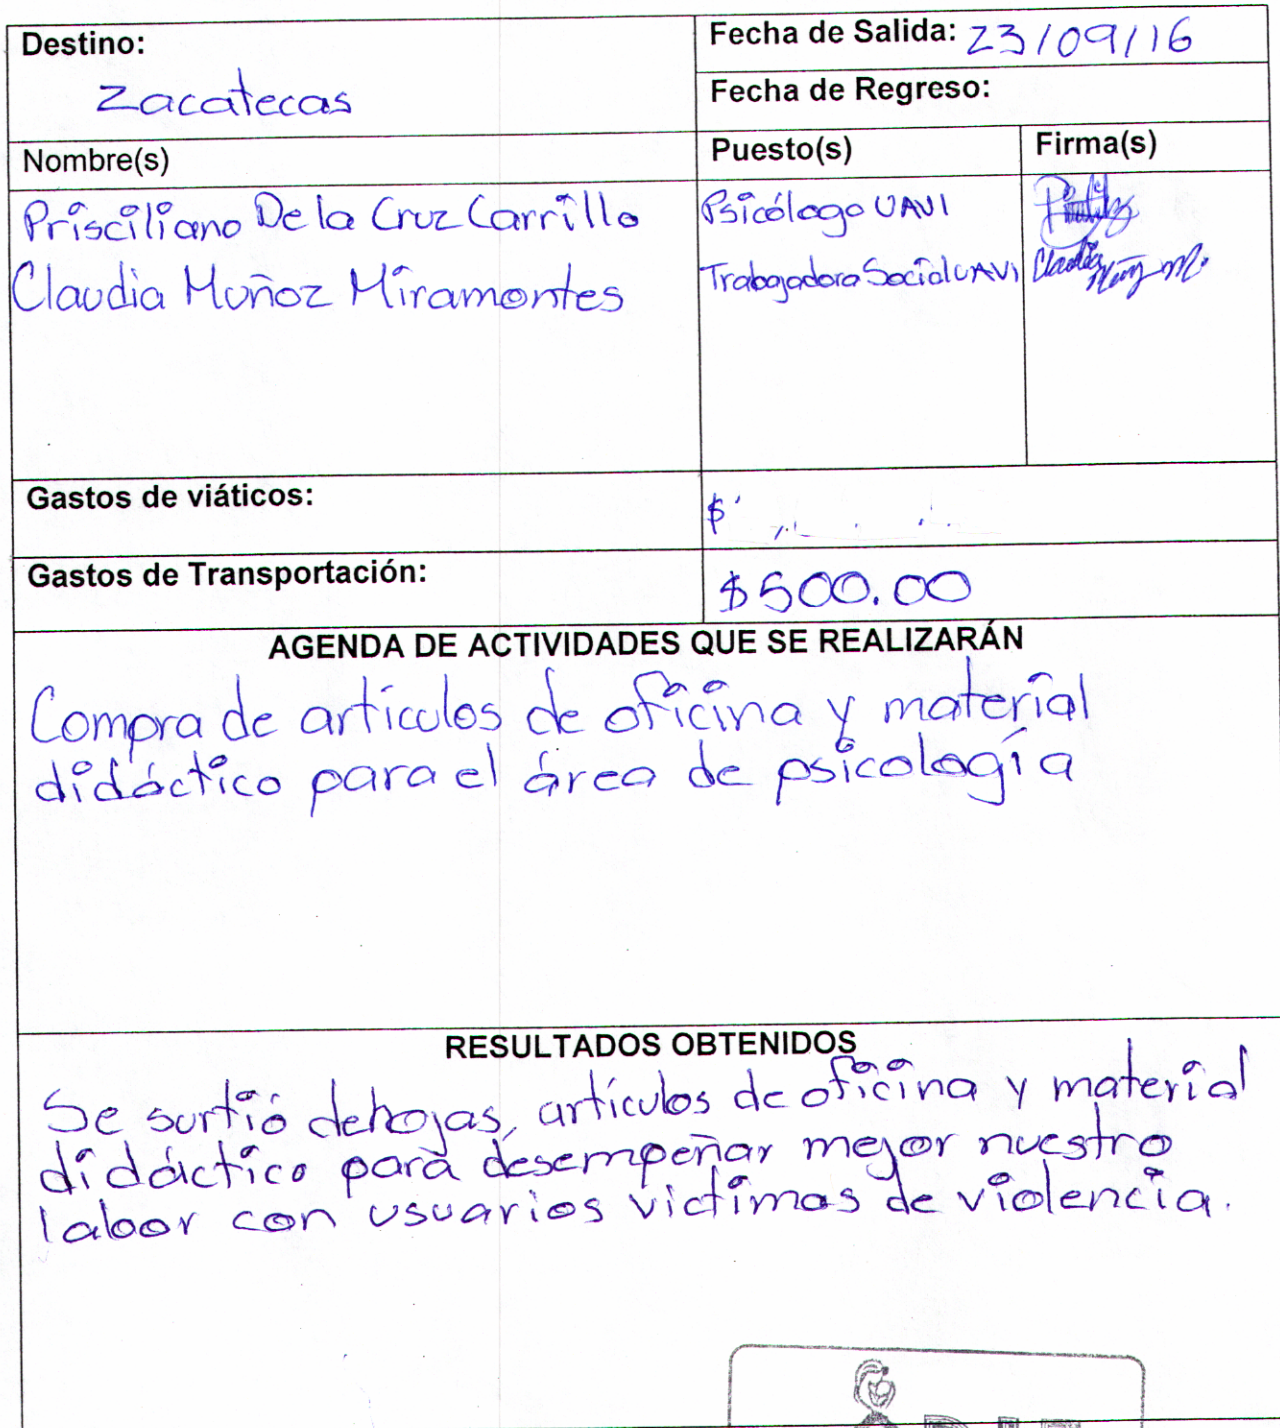 Destino:
Zacatecas
Fecha de Salida: 23/09/16
Fecha de Regreso:
Nombre(s)
Puesto(s)
Firma(s)
Prisciliano De la Cruz Carrillo
Psicólogo UAVI
Claudia Muñoz Miramontes
Trabajadora Social UAVI
Claudia Muñoz M.
Gastos de viáticos:
$
Gastos de Transportación:
$500.00
AGENDA DE ACTIVIDADES QUE SE REALIZARÁN
Compra de artículos de oficina y material
didáctico para el área de psicología
RESULTADOS OBTENIDOS
Se surtió de hojas, artículos de oficina y material
didáctico para desempeñar mejor nuestro
labor con usuarios victimas de violencia.